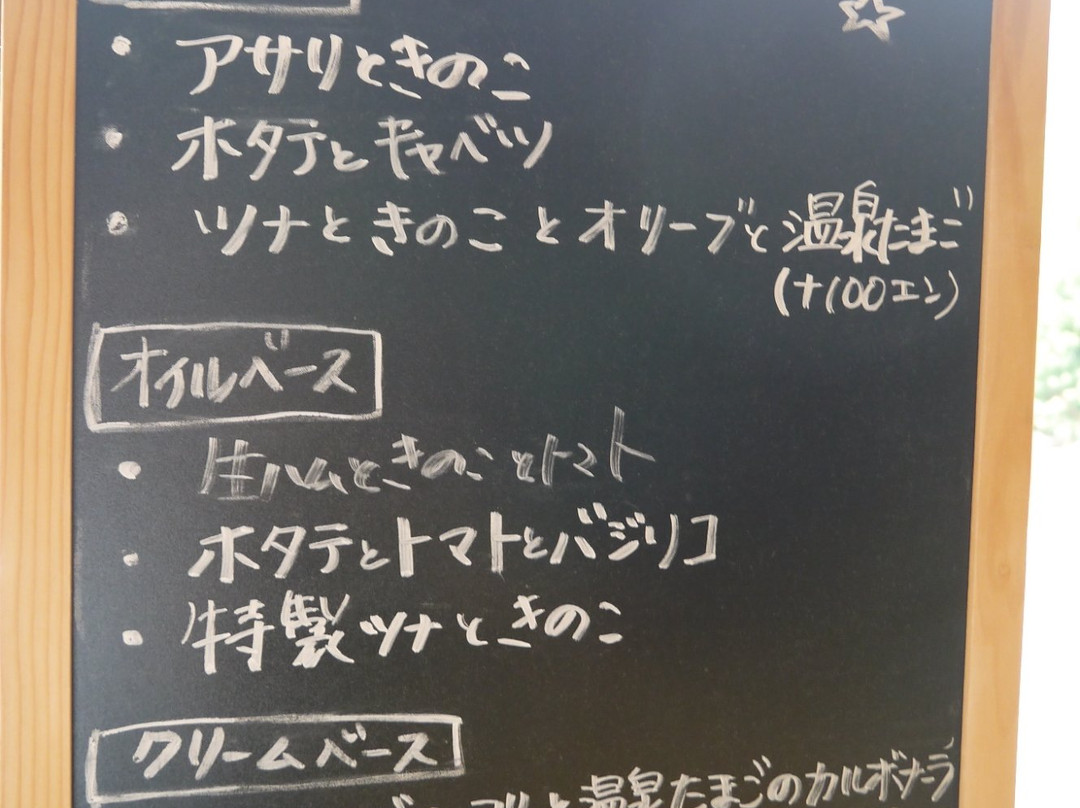 ・アサリときのこ
・ホタテとキャベツ
・ツナときのことオリーブと温泉たまご
(+100エン)
オイルベース
・生ハムときのことトマト
・ホタテとトマトとバジリコ
・特製ツナときのこ
クリームベース
と温泉たまごのカルボナーラ